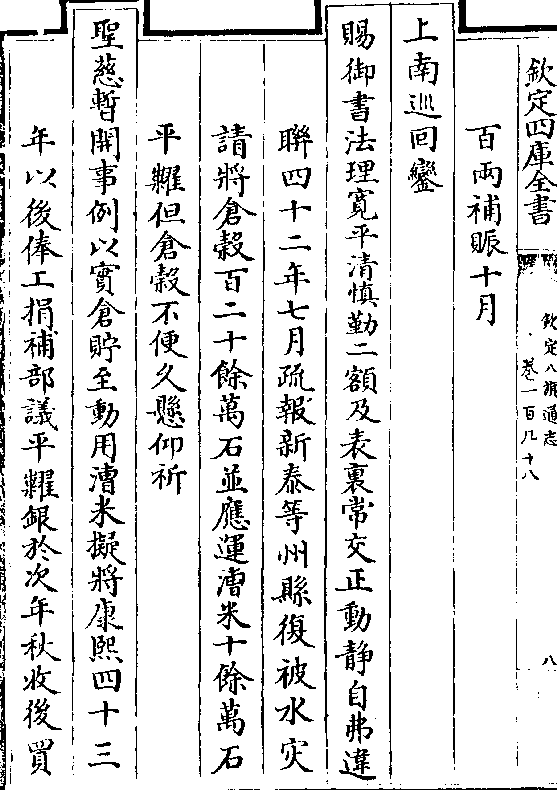 欽定四庫全書
欽定八旗通志
卷一百九十八
八
百兩補賑十月
上南巡回鑾
賜御書法理寬平清慎勤二額及表裏常交正動靜自弗違
聯四十二年七月疏報新泰等州縣復被水災
請將倉穀百二十餘萬石並應運漕米十餘萬石
平糶但倉穀不便久懸仰祈
聖慈暫開事例以實倉貯至動用漕米擬將康熙四十三
年以後俸工捐補部議平糶銀於次年秋收後買